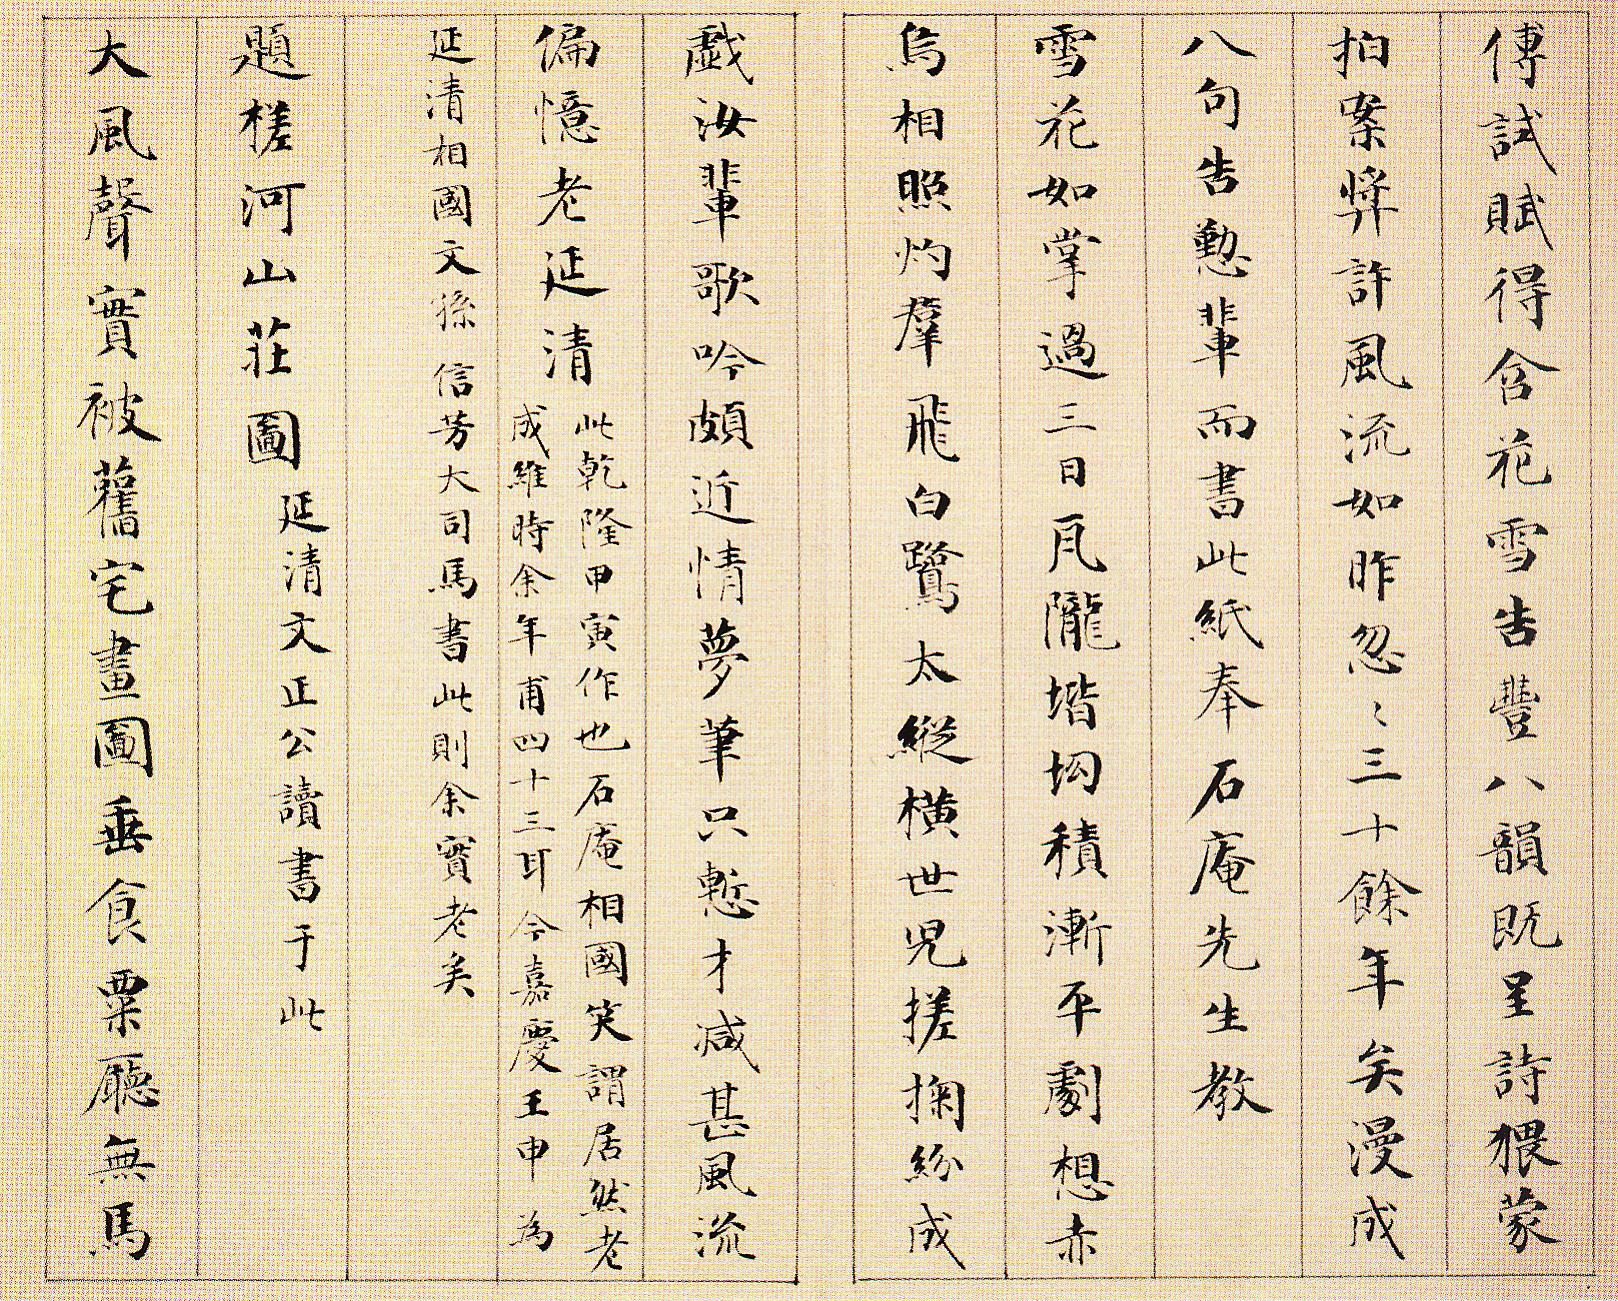 傅試賦得含花雪告豐八韻既呈詩猥蒙
拍案獎許風流如昨忽〻三十餘年矣漫成
八句告懃輩而書此紙奉石庵先生教
雪花如掌過三日瓦隴堦坳積漸平劇想赤
烏相照灼羣飛白鷺太縱橫世兒搓掬紛成
戲汝輩歌吟頗近情夢筆只慙才減甚風流
偏憶老延清
此乾隆甲寅作也石庵相國笑謂居然老
成維時余年甫四十三耳今嘉慶壬申為
延清相國文孫信芳大司馬書此則余實老矣
題槎河山莊圖
延清文正公讀書于此
大風聲實被舊宅畫圖垂食粟廳無馬